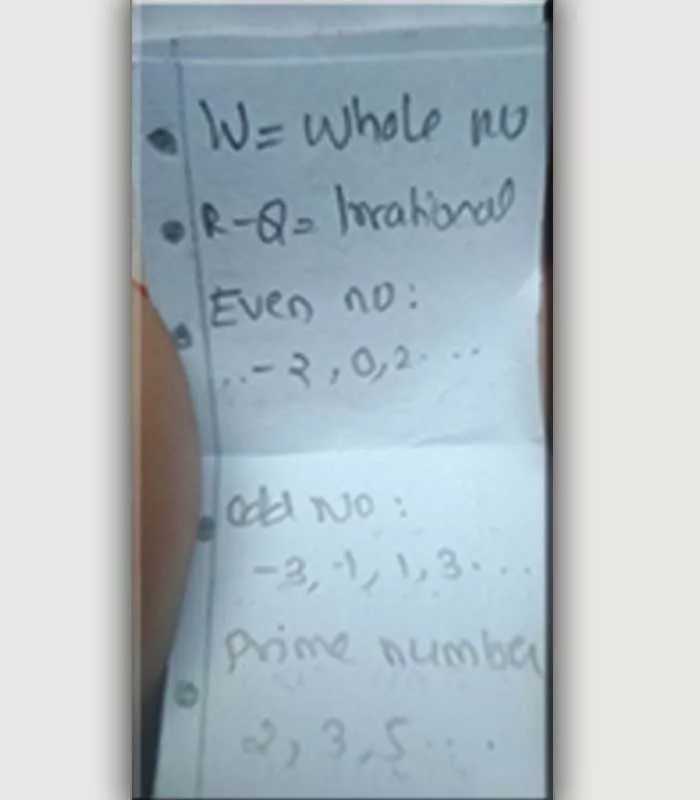 • W = Whole no
• R-Q = Irrational
• Even no:
...-2, 0, 2...
• odd No:
-3, -1, 1, 3...
• prime number
2, 3, 5...